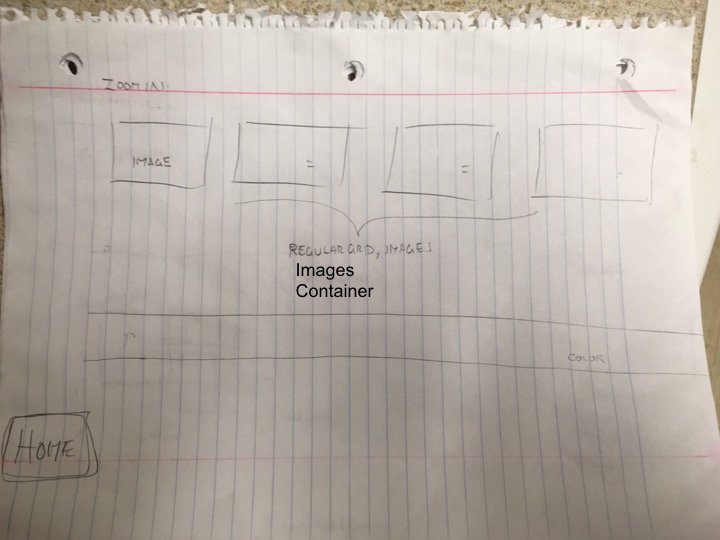 ZOOM IN:
IMAGE
=
=
REGULAR GRID, IMAGES
Images
Container
COLOR
HOME